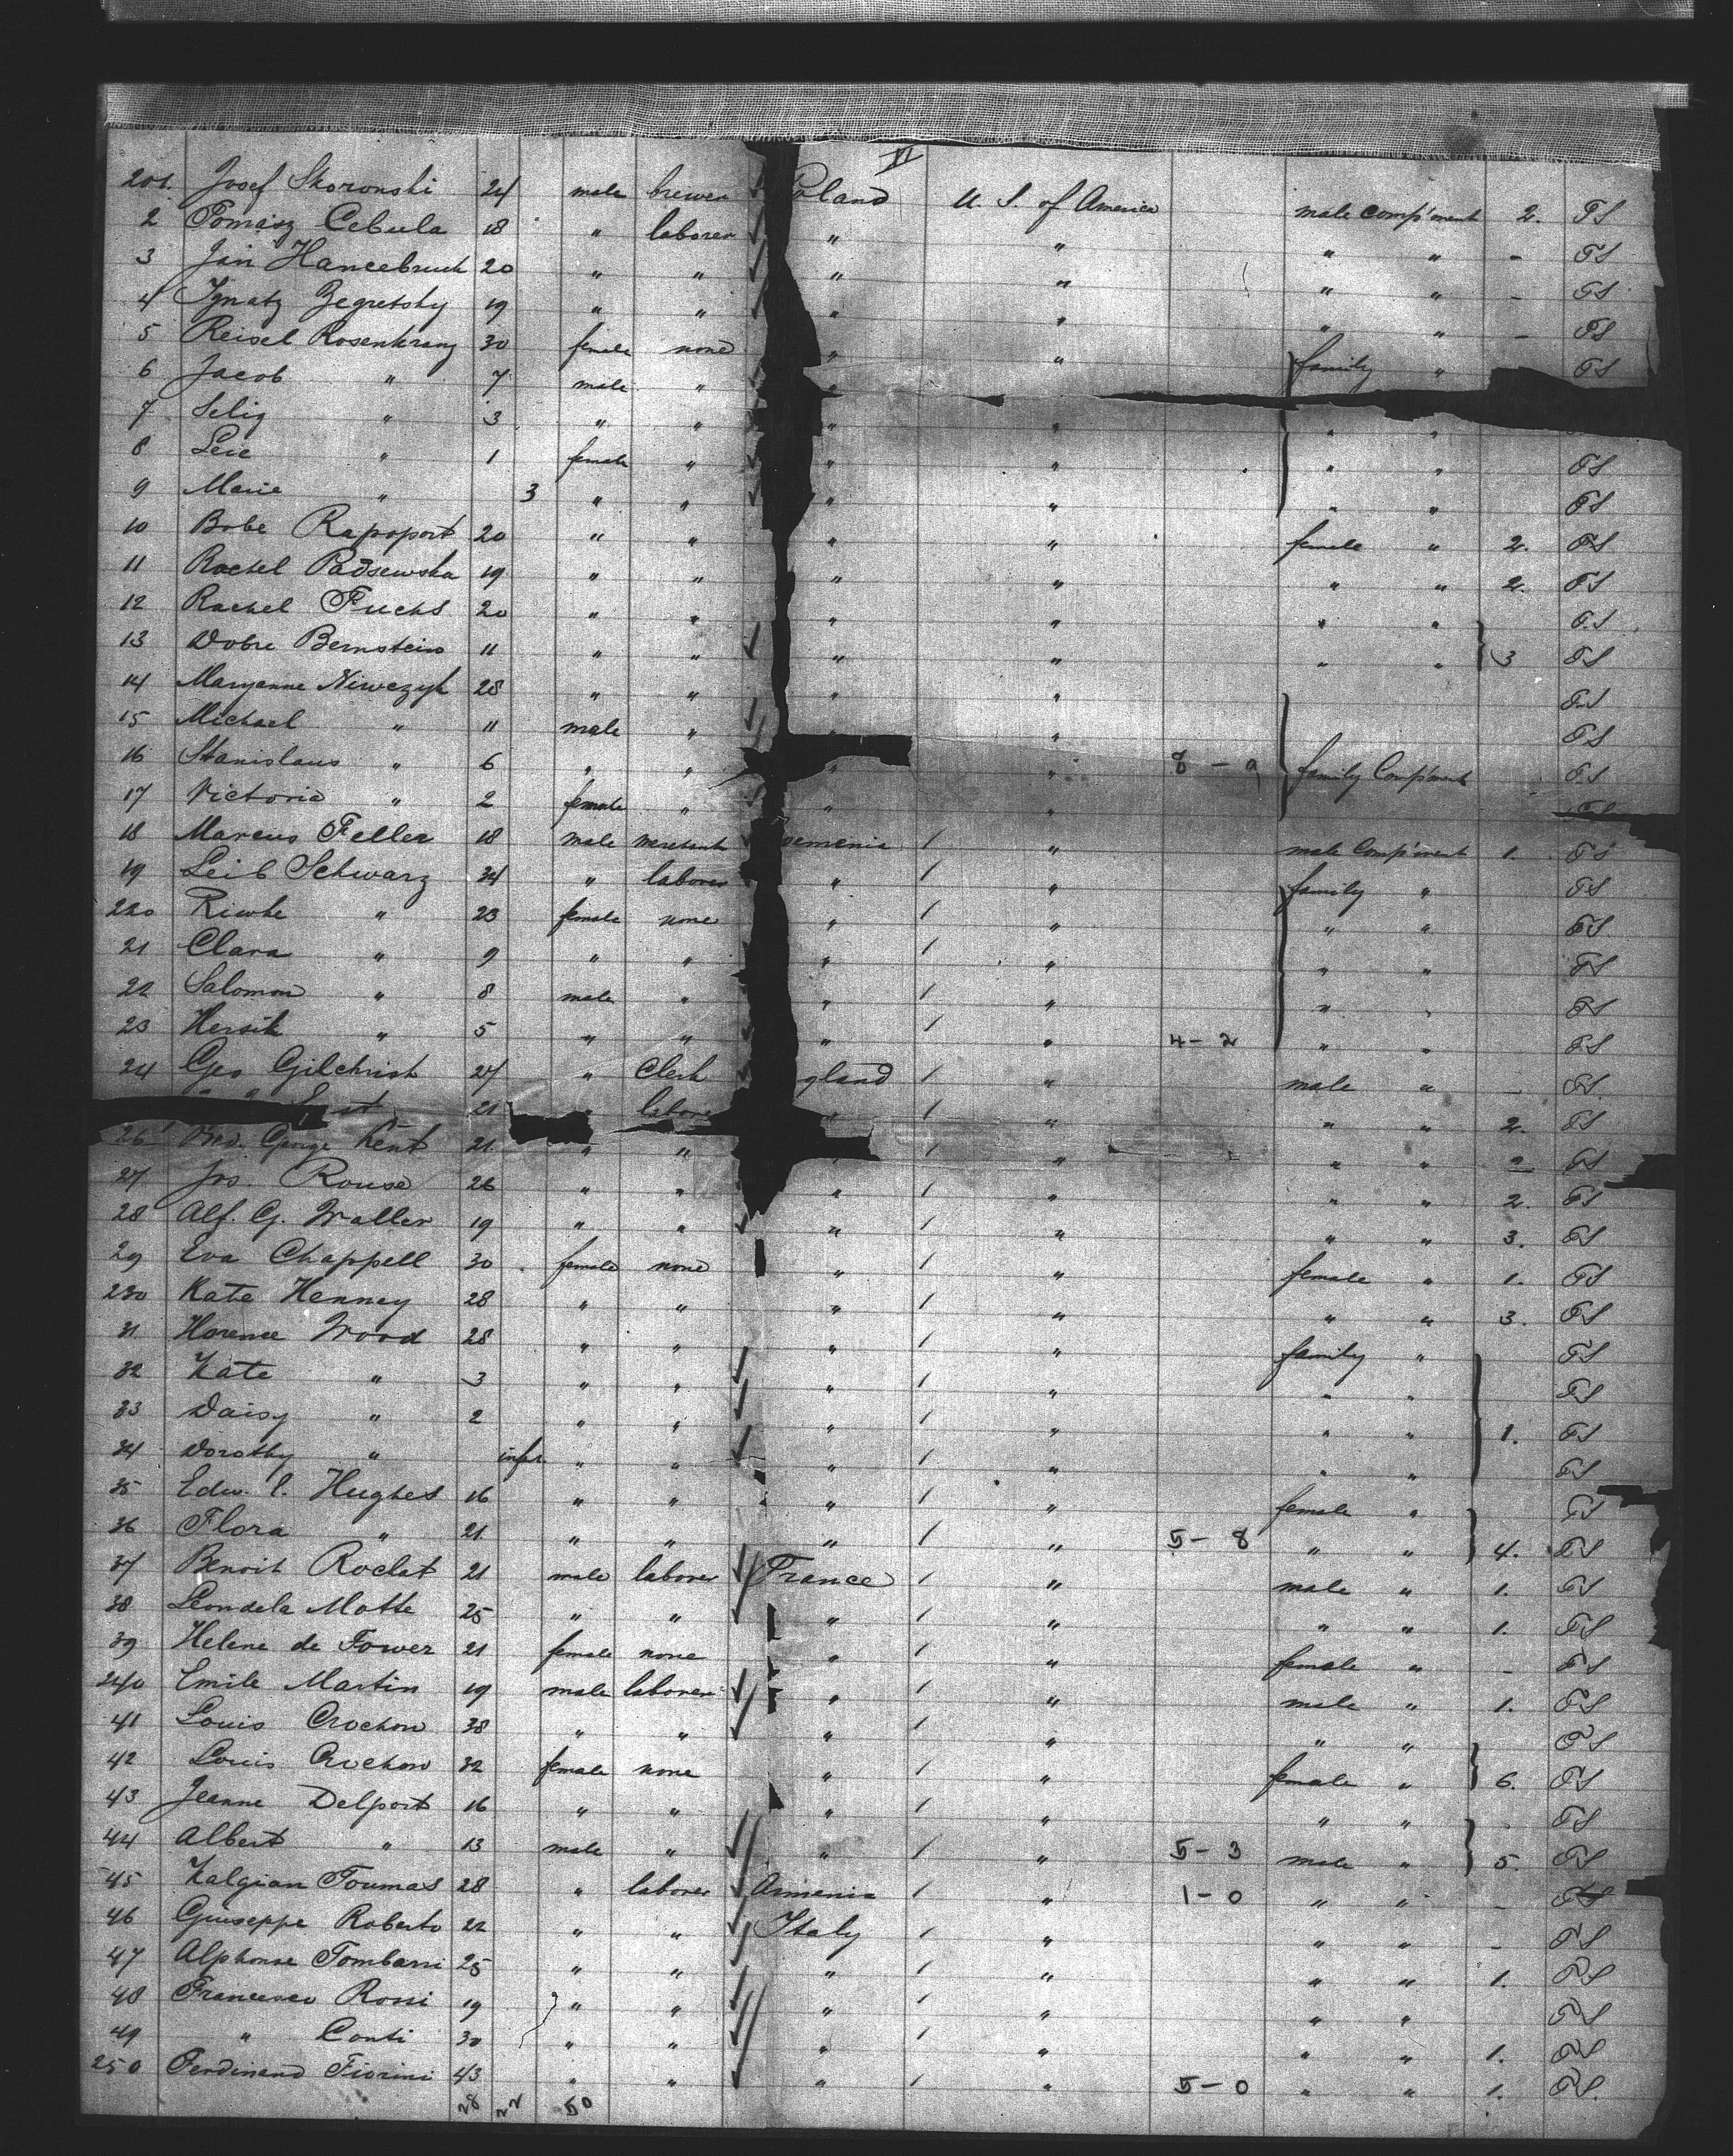 VI
201. Josef Skoronski 24 male brewer Poland U. S. of America male comp'ment 2. TS
2 Tomasz Cebula 18 " laborer " " " " - TS
3 Jan Hancebruch 20 " " " " " " - TS
4 Ignatz Zegretsky 19 " " " " " " - TS
5 Reisel Rosenkranz 30 female none " " family " TS
6 Jacob " 7 male " " "
7 Selig " 3 " " " " " "
8 Leie " 1 female " " " " " TS
9 Marie " 3 " " " " " " TS
10 Bobe Rapoport 20 " " " " female " 2. TS
11 Rachel Padsewska 19 " " " " " " 2. TS
12 Rachel Fuchs 20 " " " " " " T.S
13 Dobre Bernstein 11 " " " " " " 3 TS
14 Maryanne Niwczyk 28 " " " " TS
15 Michael " 11 male " " " TS
16 Stanislaus " 6 " " " " 8 - 9 family Comp'ment T.S
17 Victoria " 2 female " " " TS
18 Marcus Feller 18 male merchant " male Comp'ment 1. TS
19 Leib Schwarz 34 " laborer " " family " TS
220 Riwke " 23 female none " " " " TS
21 Clara " 9 " " " " " " TS
22 Salomon " 8 male " " " " " TS
23 Hersik " 5 " " " " 4 - 2 " " T.S
24 Geo Gilchrist 27 " Clerk gland " male " - TS.
21 " labore " " " 2. TS
26 George Kent 21. " " " " " " 2 TS
27 Jos. Rouse 26 " " " " " " 2. TS
28 Alf. G. Waller 19 " " " " " " 3. TS
29 Eva Chappell 30 female none " " female " 1. TS
230 Kate Kenney 28 " " " " " " 3. TS
31 Florence Wood 28 " " " " family " TS
32 Kate " 3 " " " " " " TS
33 Daisy " 2 " " " " " " 1. TS
34 Dorothy " infa. " " " " " " TS
35 Edw. E. Hughes 16 " " " " female " TS
36 Flora " 21 " " " " 5 - 8 " " 4. TS
37 Benoit Roclat 21 male laborer France " male " 1. TS
38 Leon de la Motte 25 " " " " " " 1. TS
39 Helene de Fower 21 female none " " female " - TS
240 Emile Martin 19 male laborer " " male " 1. TS
41 Louis Crochon 38 " " " " " " TS
42 Louis Crochon 32 female none " " female " 6. TS
43 Jeanne Delport 16 " " " " " " TS
44 Albert " 13 male " " " 5 - 3 male " 5. TS
45 Kalgian Toumas 28 " laborer Armenia " 1 - 0 " " - TS
46 Giuseppe Roberto 22 " " Italy " " " - TS
47 Alphonse Tombarri 25 " " " " " " 1. TS
48 Francesco Rossi 19 " " " " " " TS
49 " Conti 30 " " " " " " 1. TS
250 Ferdinand Fiorini 43 " " " " 5 - 0 " " 1. TS.
28 22 50